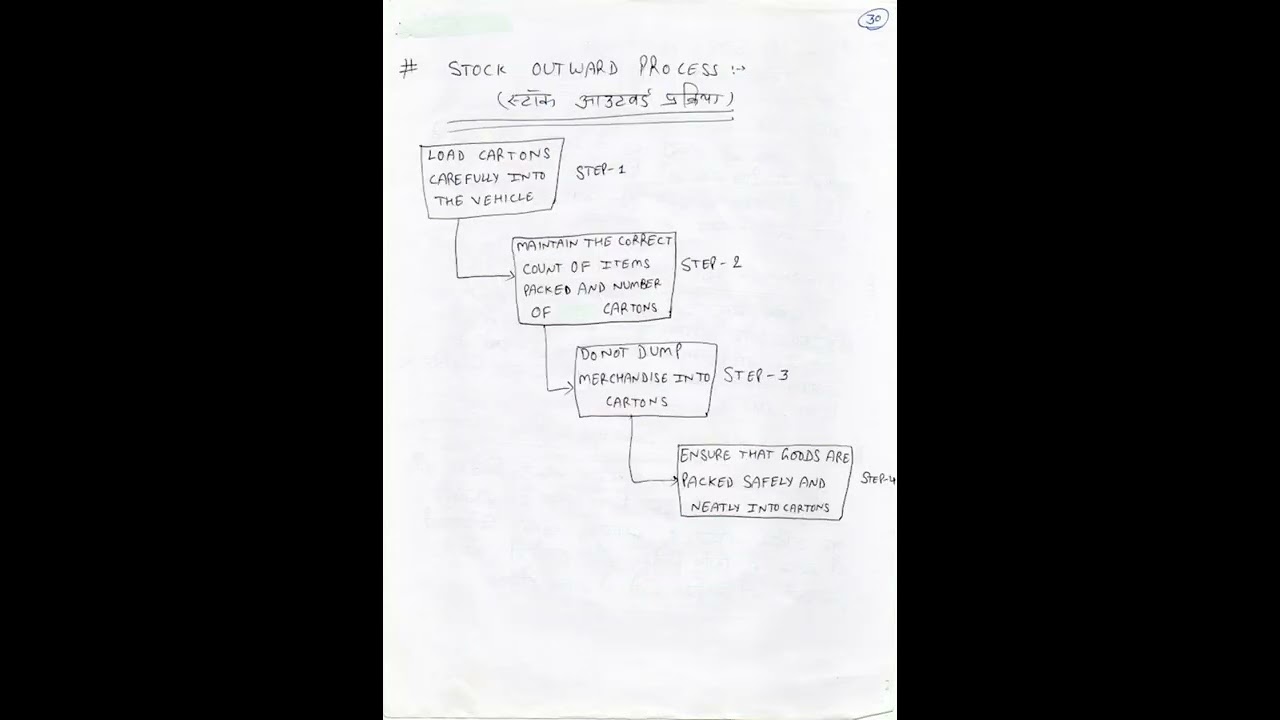 30
# STOCK OUTWARD PROCESS :→
(स्टॉक आउटवर्ड प्रक्रिया)
LOAD CARTONS
CAREFULLY INTO
THE VEHICLE
STEP-1
MAINTAIN THE CORRECT
COUNT OF ITEMS
PACKED AND NUMBER
OF CARTONS
STEP-2
DO NOT DUMP
MERCHANDISE INTO
CARTONS
STEP-3
ENSURE THAT GOODS ARE
PACKED SAFELY AND
NEATLY INTO CARTONS
STEP-4